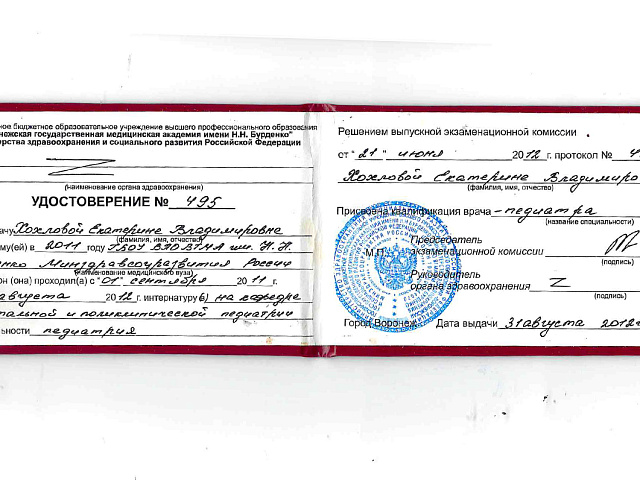 ное бюджетное образовательное учреждение высшего профессионального образования
нежская государственная медицинская академия имени Н.Н. Бурденко"
терства здравоохранения и социального развития Российской Федерации
(наименование органа здравоохранения)
УДОСТОВЕРЕНИЕ № 495
ачу Хохловой Екатерине Владимировне
(фамилия, имя, отчество)
му(ей) в 2011 году ГБОУ ВПО ВГМА им. Н.Н.
енко Минздравсоцразвития России
(наименование медицинского вуза)
он (она) проходил(а) с "01" сентября 2011 г.
августа 2012 г. интернатуру б) на кафедре
тальной и поликлинической педиатрии
льности педиатрия
Решением выпускной экзаменационной комиссии
от "21" июня 2012 г. протокол № 4
Хохловой Екатерине Владимиро
(фамилия, имя, отчество)
Присвоена квалификация врача - педиатра
(название специальности)
Председатель
М.П. экзаменационной комиссии
(подпись)
Руководитель
органа здравоохранения Z
(подпись)
Город Воронеж Дата выдачи 31 августа 2012г